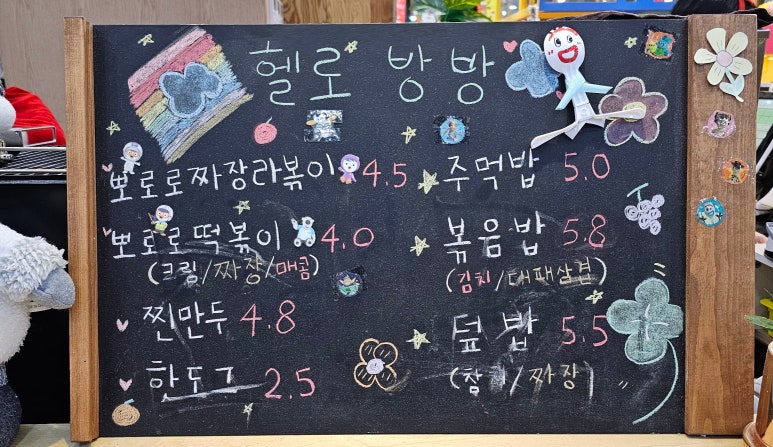 헬로 방방
뽀로로짜장라볶이 4.5
뽀로로떡볶이 4.0
(크림/짜장/매콤)
찐만두 4.8
한도그 2.5
주먹밥 5.0
볶음밥 5.8
(김치/대패삼겹)
덮밥 5.5
(참치/짜장)